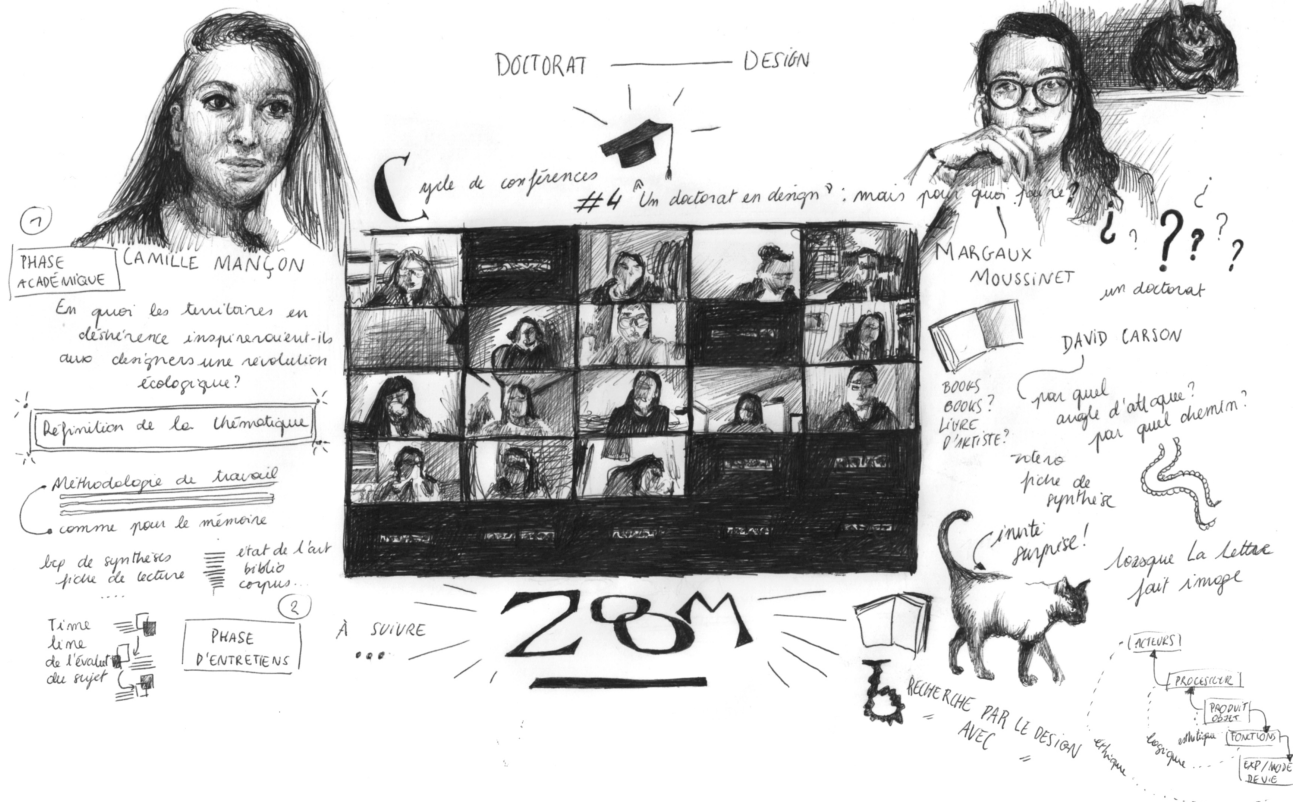 DOCTORAT — DESIGN
Cycle de conférences
#4 "Un doctorat en design" : mais pour quoi faire?
1
PHASE
ACADÉMIQUE
CAMILLE MANÇON
En quoi les territoires en
déshérence inspireraient-ils
aux designers une révolution
écologique?
Définition de la thématique
Méthodologie de travail
comme pour le mémoire
bcp de synthèses
fiche de lecture
....
état de l'art
biblio
corpus...
Time
line
de l'évolut°
du sujet
2
PHASE
D'ENTRETIENS
À SUIVRE
...
ZOOM
MARGAUX
MOUSSINET
¿ ? ? ? ¿ ? ?
un doctorat
DAVID CARSON
par quel
angle d'attaque?
par quel chemin?
BOOKS
BOOKS?
LIVRE
D'ARTISTE?
fiche de
synthèse
invité
surprise!
lorsque La lettre
fait image
b
RECHERCHE PAR LE DESIGN
AVEC
= =
ACTEURS
PROCESSUS
PRODUIT
OBJET
FONCTIONS
EXP/MODE
DE VIE
éthique
logique
esthétique